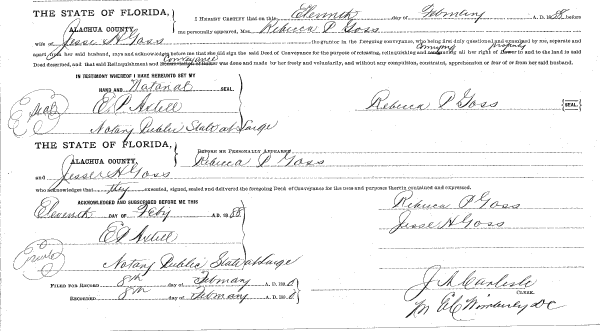 THE STATE OF FLORIDA,
ALACHUA COUNTY.
I HEREBY CERTIFY that on this Eleventh day of February A. D. 188 before
me personally appeared, Mrs. Rebecca P Goss
wife of Jesse H Goss the grantor in the foregoing conveyance, who being first duly questioned and examined by me, separate and
apart, from her said husband, says and acknowledges before me that she did sign the said Deed of Conveyance for the purpose of releasing, relinquishing and Conveying all her right of property in and to the land in said
Deed described, and that said Relinquishment and Conveyance was done and made by her freely and voluntarily, and without any compulsion, constraint, apprehension or fear of or from her said husband.
IN TESTIMONY WHEREOF I HAVE HEREUNTO SET MY
HAND AND Notarial SEAL.
Seal
E. P. Axtell
Rebecca P Goss SEAL.
Notary Public State at Large
THE STATE OF FLORIDA,
ALACHUA COUNTY,
BEFORE ME PERSONALLY APPEARED
Rebecca P Goss
and Jesse H Goss
who acknowledges that they executed, signed, sealed and delivered the foregoing Deed of Conveyance for the uses and purposes therein contained and expressed.
ACKNOWLEDGED AND SUBSCRIBED BEFORE ME THIS
Eleventh DAY OF Feby A. D. 188
Rebecca P Goss
Jesse H Goss
E P Axtell
Notary Public State at Large
FILED FOR RECORD 8th February A. D. 188
RECORDED 8th February A. D. 188
J A Carlisle
CLERK.
E C Wimberly DC